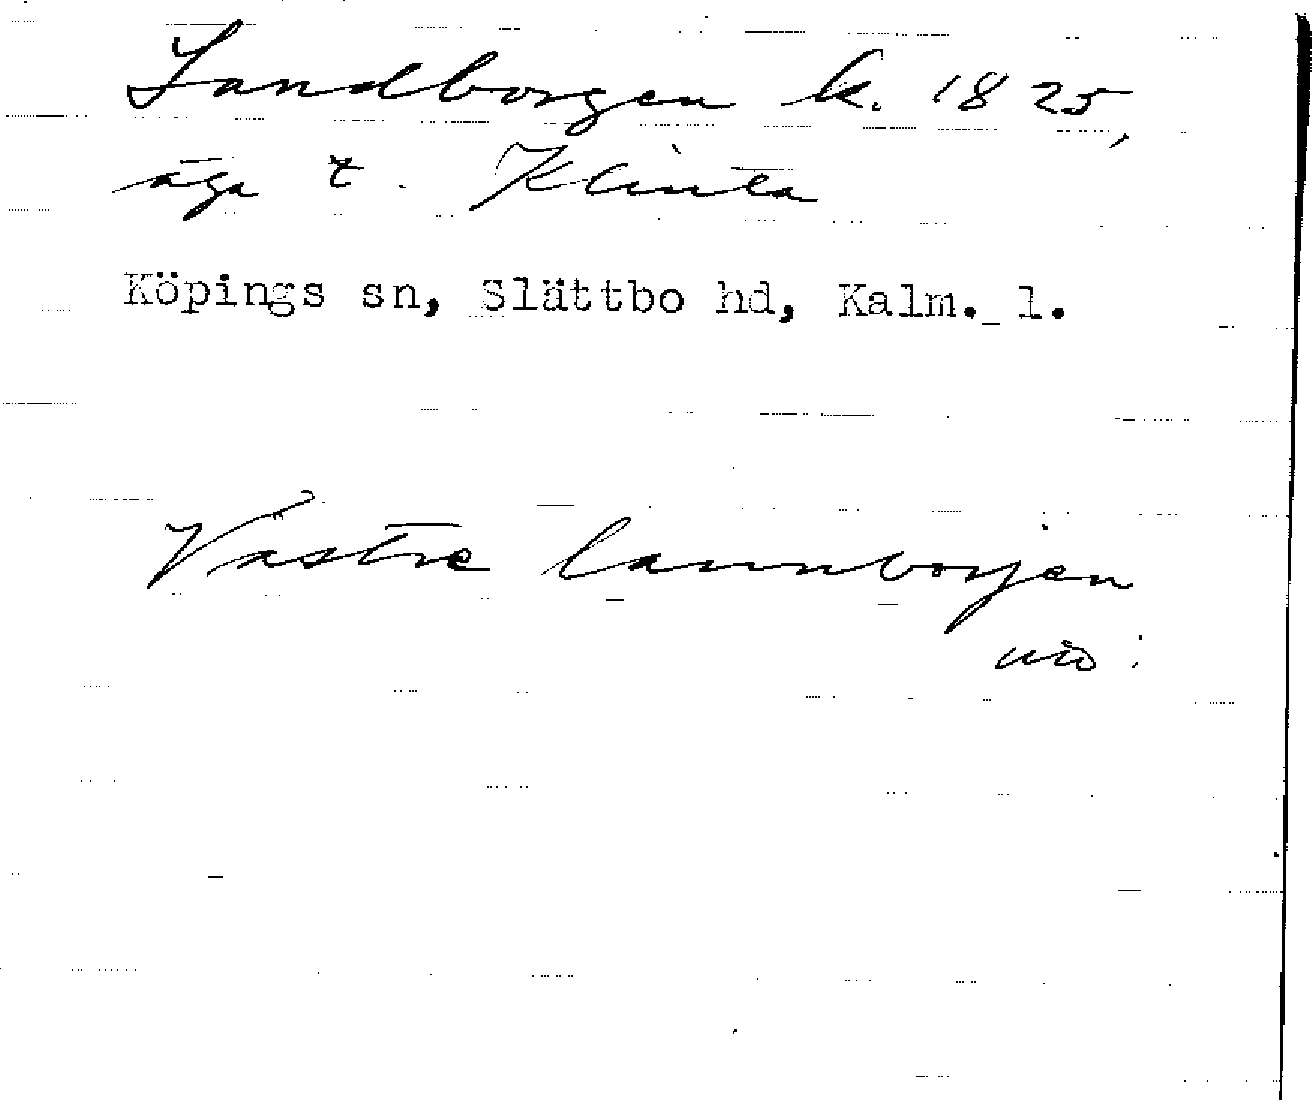 Landborgen k. 1825,
äga t. Klinta
Köpings sn, Slättbo hd, Kalm. l.
Västre lannborjen